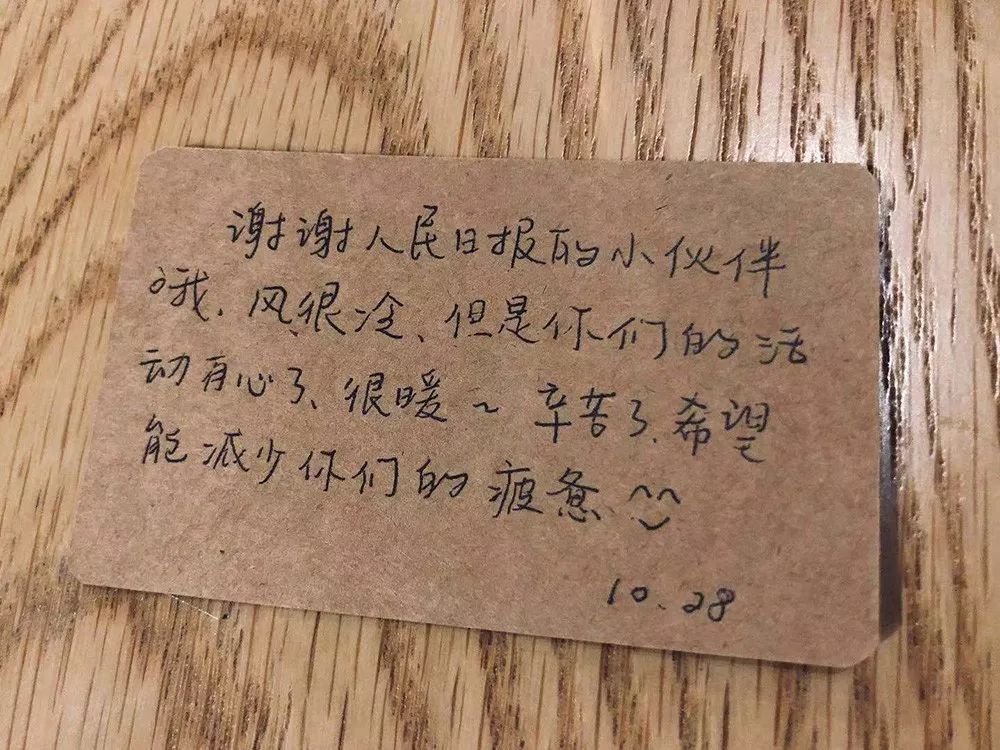 谢谢人民日报的小伙伴
哦、风很冷、但是你们的活
动有心了、很暖~ 辛苦了、希望
能减少你们的疲惫 ^^
10.28